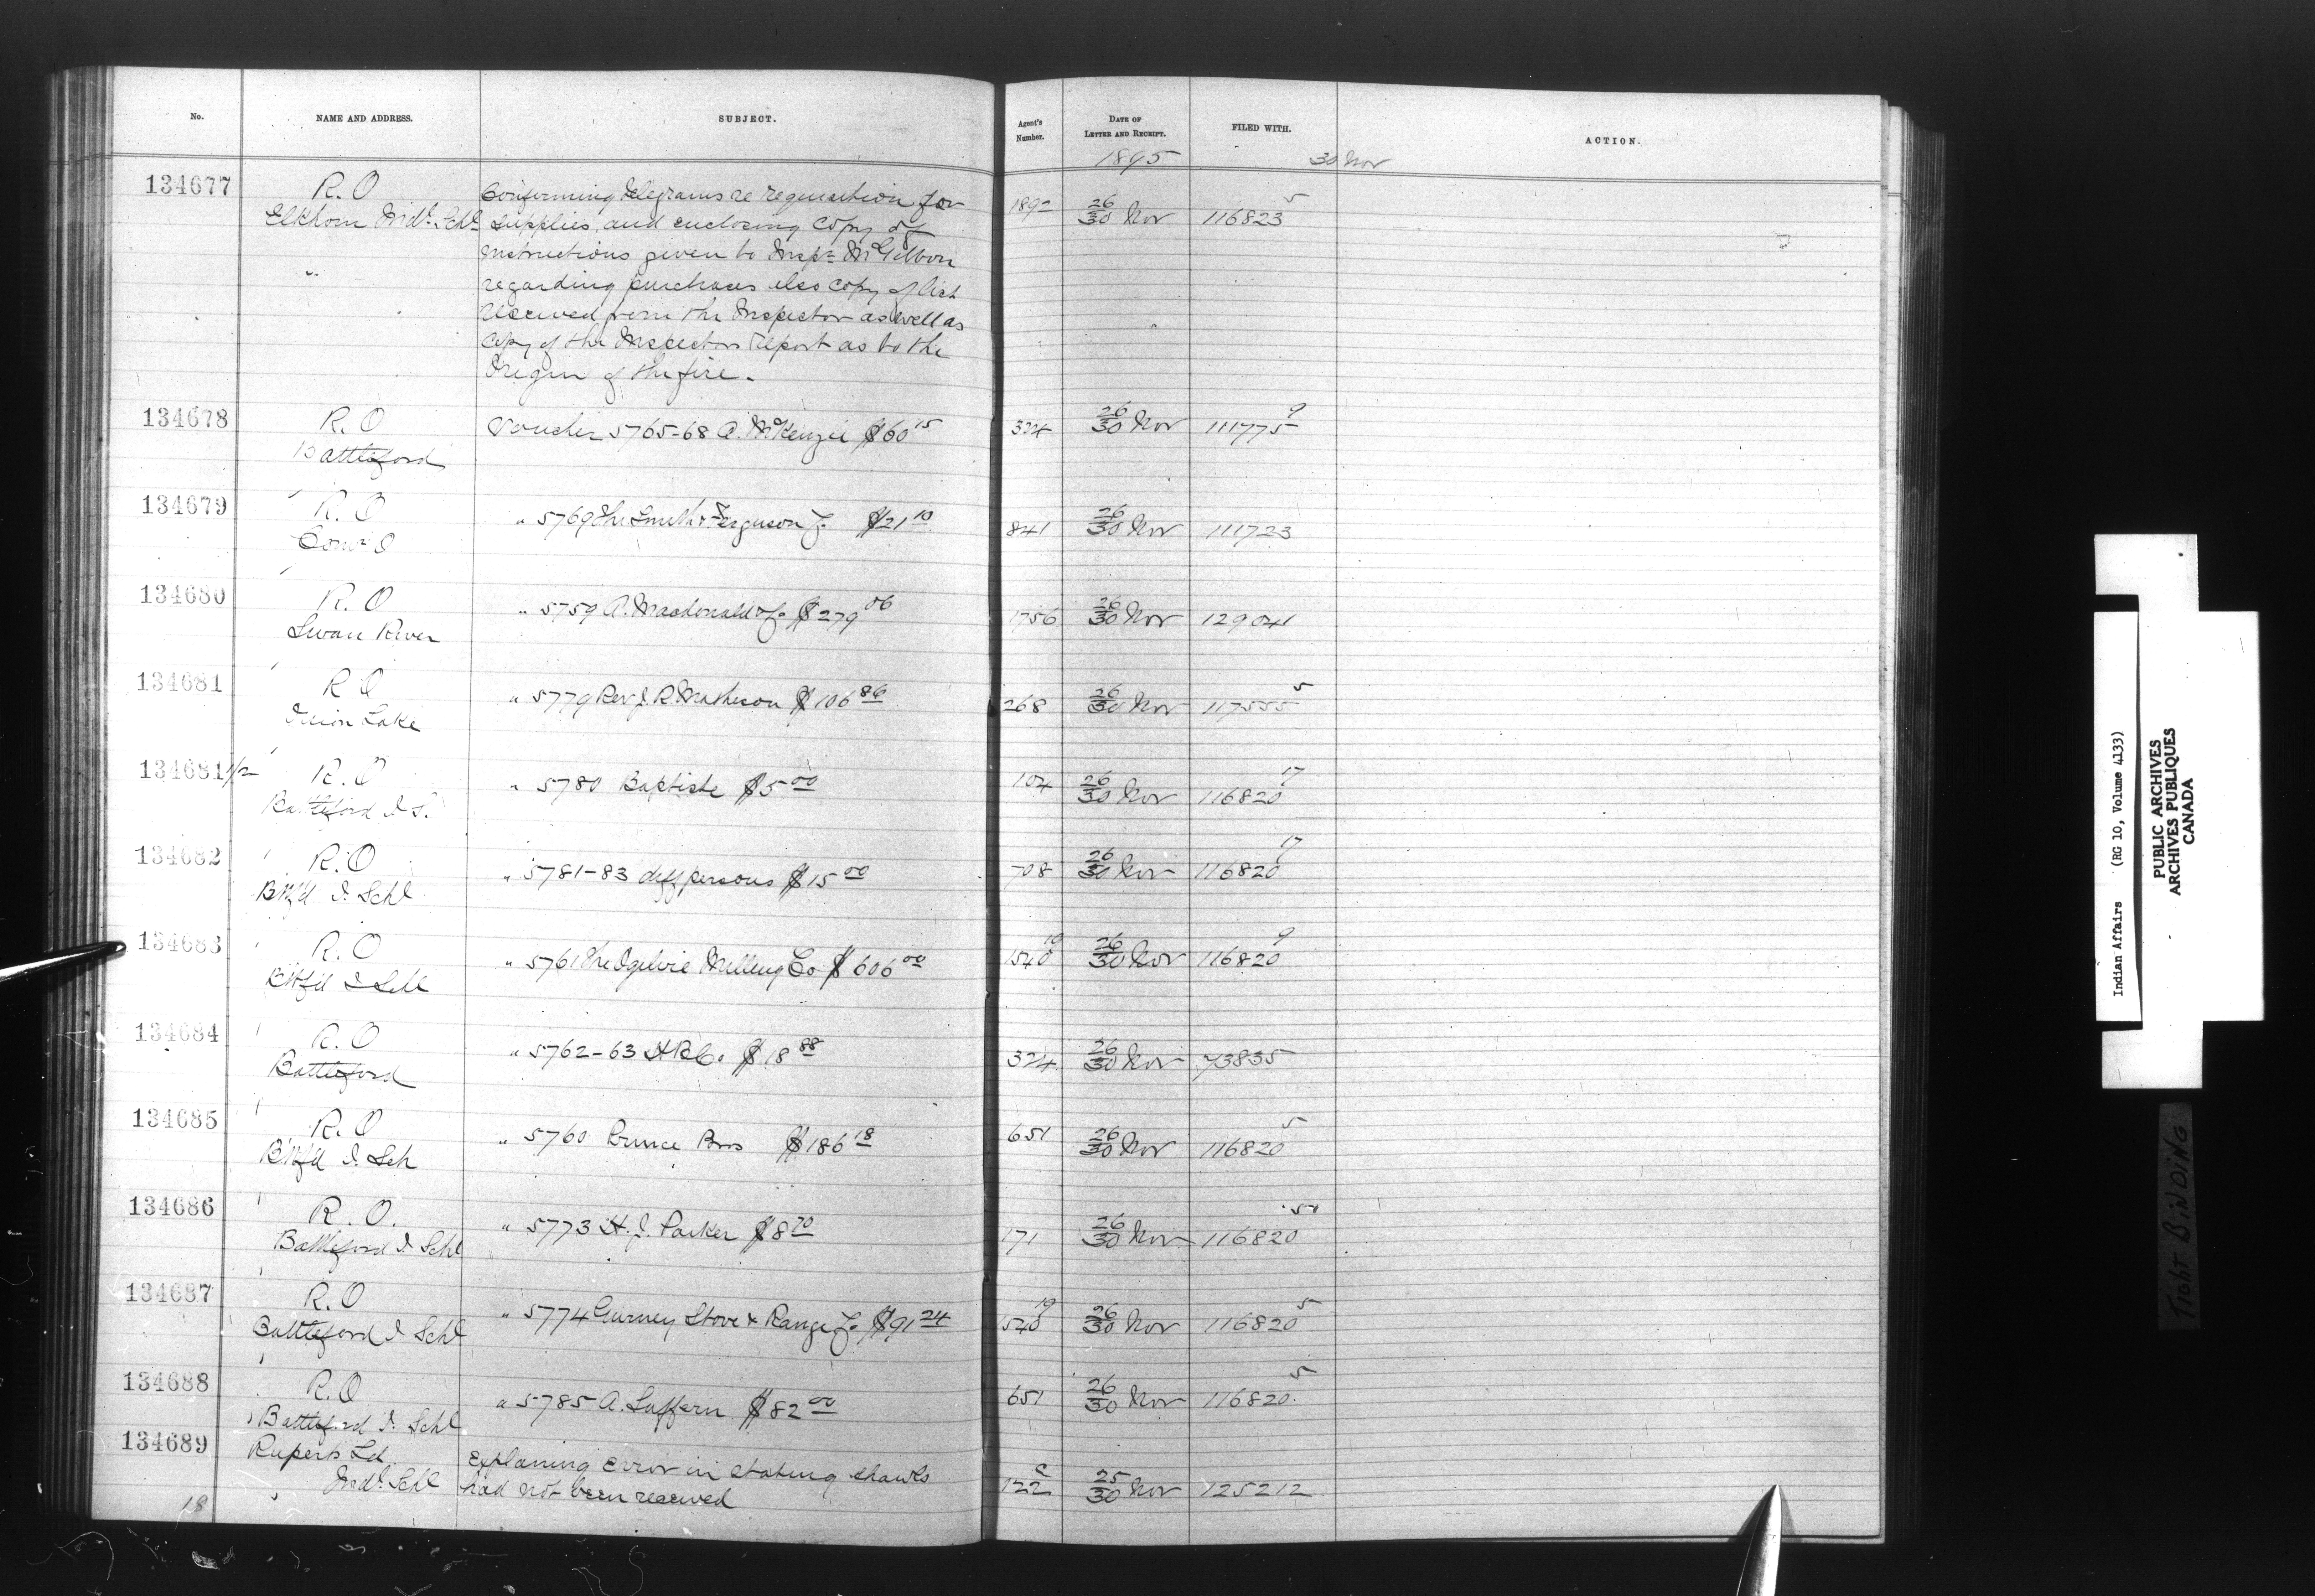 No. NAME AND ADDRESS. SUBJECT. Agent's Number. DATE OF LETTER AND RECEIPT. FILED WITH. ACTION.
1895 30 Nov
134677 R.O Confirming telegrams re requisition for 1892 26/30 Nov 116823 5
Elkhorn Indl. Schl supplies and enclosing copy of
instructions given to Inspr McGibbon
" regarding purchases also copy of list
received from the Inspector as well as
copy of the Inspectors report as to the
Origin of the fire.
134678 R.O Voucher 5765-68 A. McKenzie $60 15 324 26/30 Nov 111775 9
Battleford
134679 R.O " 5769 The Smith & Ferguson Co $21 10 841 26/30 Nov 111723
134680 R.O " 5759 A. Macdonald & Co $279 06 1756 26/30 Nov 129041
Swan River
134681 R O " 5779 Rev J. R. Matheson $106 86 268 26/30 Nov 117555 5
Onion Lake
134681 1/2 R.O " 5780 Baptiste $5 00 104 26/30 Nov 116820 17
Battleford I S.
134682 R.O " 5781-83 diff persons $15 00 708 26/30 Nov 116820 17
Btfd I. Schl
134683 R.O " 5761 The Ogilvie Milling Co $606 00 1540 19 26/30 Nov 116820 9
Btfd I Schl
134684 R.O " 5762-63 H B Co. $18 88 324 26/30 Nov 73835
Battleford
134685 R.O " 5760 Prince Bros $186 18 651 26/30 Nov 116820 5
Btfd I. Sch
134686 R.O. " 5773 H. J. Parker $8 70 171 26/30 Nov 116820 5
Battleford I Schl
134687 R.O " 5774 Gurney Stove & Range Co $91 24 1540 19 26/30 Nov 116820 5
Battleford I Schl
134688 R.O " 5785 A. Suffern $82 00 651 26/30 Nov 116820 5
Battleford I. Schl
134689 Ruperts Ld Explaining error in stating shawls 122 25/30 Nov 125212
Indl. Schl had not been received
18
Indian Affairs (RG 10, Volume 4133)
PUBLIC ARCHIVES
ARCHIVES PUBLIQUES
CANADA
TIGHT BINDING